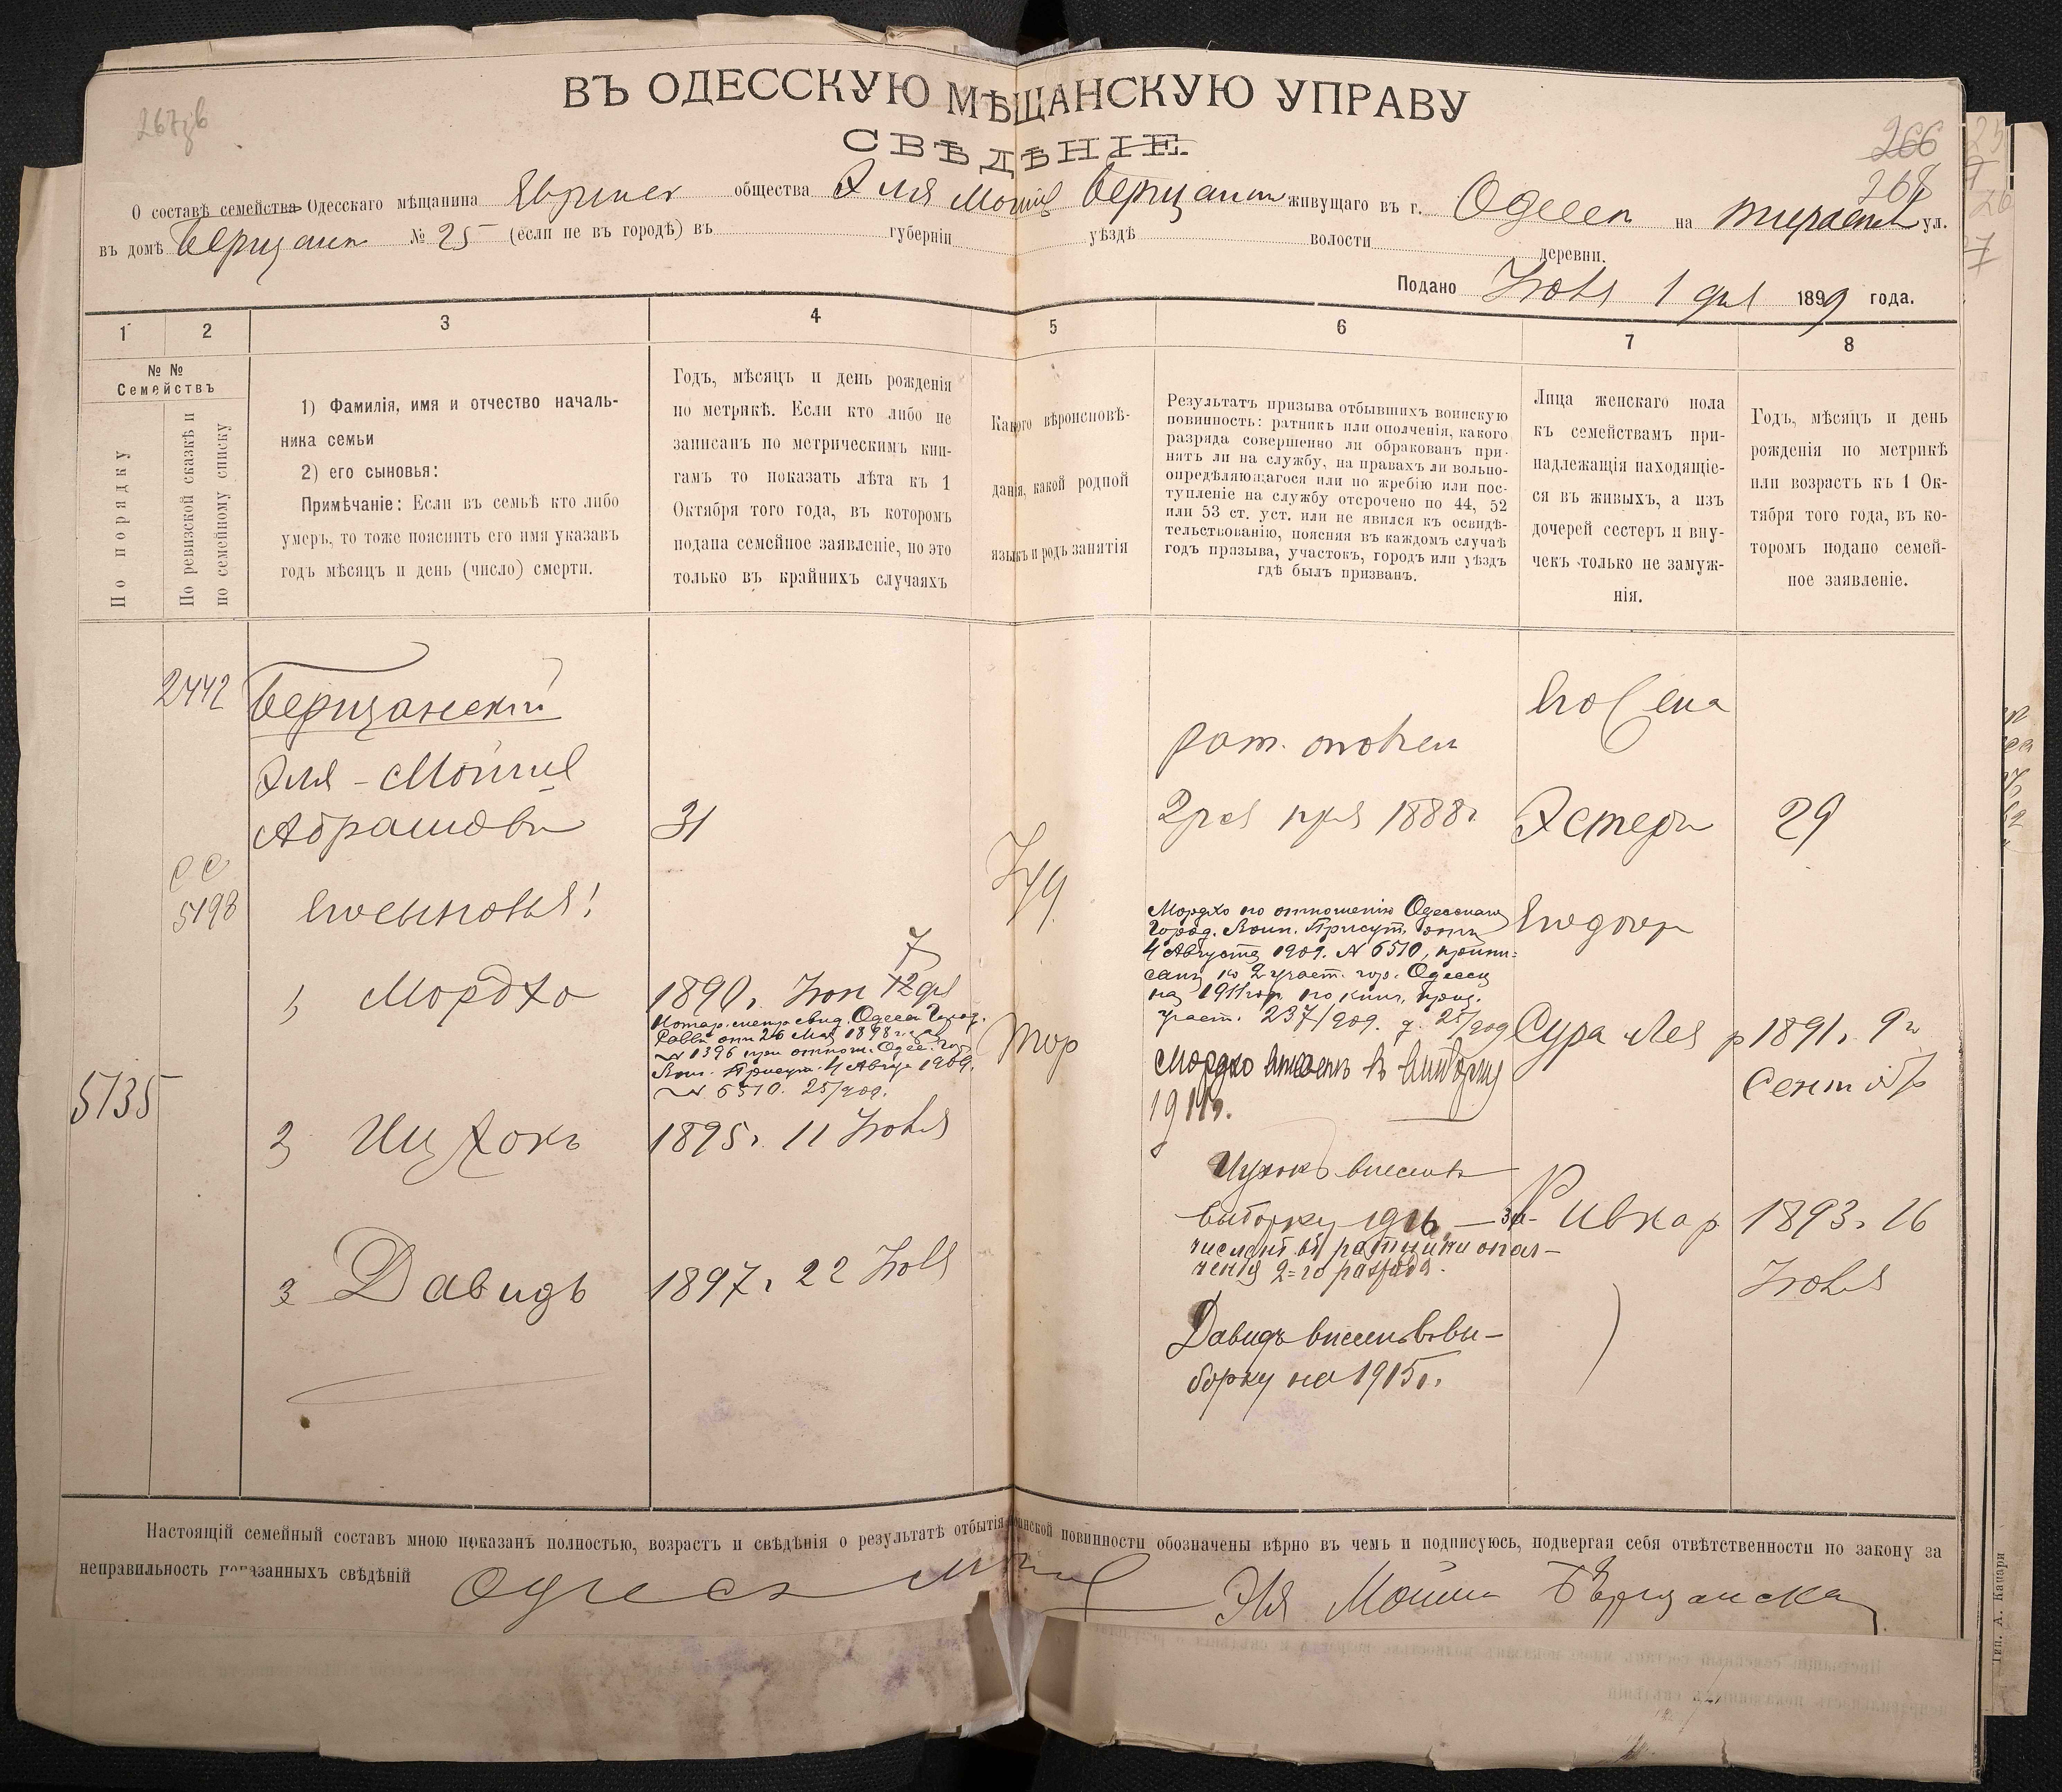 267зв
266
268
ВЪ ОДЕССКУЮ МѢЩАНСКУЮ УПРАВУ
СВѢДѢНІЕ.
О составѣ семейства Одесскаго мѣщанина Еврейск общества Эля Мошко Берщанск живущаго въ г. Одессѣ на ул.
въ домѣ Берщанск № 25 (если не въ городѣ) въ губерніи уѣздѣ волости деревни.
Подано 1 дня 1899 года.
1 2 3 4 5 6 7 8
№ № Семействъ
По порядку
По ревизской сказкѣ и по семейному списку
1) Фамилія, имя и отчество началь-
ника семьи
2) его сыновья:
Примѣчаніе: Если въ семьѣ кто либо
умеръ, то тоже пояснить его имя указавъ
годъ мѣсяцъ и день (число) смерти.
Годъ, мѣсяцъ и день рожденія
по метрикѣ. Если кто либо не
записанъ по метрическимъ кни-
гамъ то показать лѣта къ 1
Октября того года, въ которомъ
подана семейное заявленіе, но это
только въ крайнихъ случаяхъ
Какого вѣроисповѣ-
данія, какой родной
языкъ и родъ занятія
Результатъ призыва отбывшихъ воинскую
повинность: ратникъ или ополченія, какого
разряда совершенно ли обракованъ при-
нятъ ли на службу, на правахъ ли вольно-
опредѣляющагося или по жребію или пос-
тупленіе на службу отсрочено по 44, 52
или 53 ст. уст. или не явился къ освидѣ-
тельствованію, поясняя въ каждомъ случаѣ
годъ призыва, участокъ, городъ или уѣздъ
гдѣ былъ призванъ.
Лица женскаго пола
къ семействамъ при-
надлежащія находящіе-
ся въ живыхъ, а изъ
дочерей сестеръ и вну-
чекъ только не замуж-
нія.
Годъ, мѣсяцъ и день
рожденія по метрикѣ
или возрастъ къ 1 Ок-
тября того года, въ ко-
торомъ подано семей-
ное заявленіе.
2442 Берщанскій
его жена
Эля-Мошко
рат. ополчен
Абрамовъ 31
2 раз 1888г. Эстеръ 29
сс
5198 его сыновья! Іуд
его дочер
1, Мордхо 1890г. Іюн 12 7 дня
Нотар. метр. свид. Одесск. Город.
Равви отъ 26 Мая 1898 г. за
№ 1396 при отнош. Одес. Гор.
Воин. Присут. 4 Авгус 1909.
№ 6510. 25/909.
тор
Мордхо по отношенію Одесскаго
Город. Воин. Присут. отъ
4 Августа 1909. № 6510, припи-
санъ ко 2 участ. гор. Одессы
на 1911 год по кни. приз.
участ. 237/909. д. 25/909
Мордхо внесенъ въ выборку
1911г.
Сура Лея р 1891г. 9го
Сентябр
5135
2 Ицхокъ 1895г. 11 Іюля
Ицхокъ внесенъ въ
выборку 1916 — за-
численъ въ ратники опол-
ченія 2=го разряда.
Ривка р 1893г. 16
Іюля
3 Давидъ 1897г. 22 Іюля
Давидъ внесенъ въ вы-
борку на 1915г.
Настоящій семейный составъ мною показанъ полностью, возрастъ и свѣдѣнія о результатѣ отбытія воинской повинности обозначены вѣрно въ чемъ и подписуюсь, подвергая себя отвѣтственности по закону за
неправильность показанныхъ свѣдѣній
Эля Мошко Берщанска
Тип. А. Канари